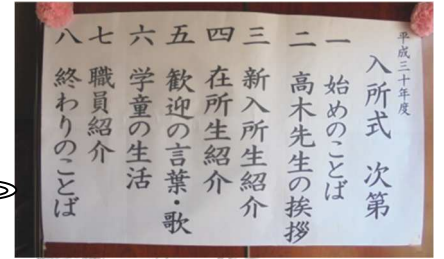 平成三十年度
入所式 次第
一 始めのことば
二 高木先生の挨拶
三 新入所生紹介
四 在所生紹介
五 歓迎の言葉・歌
六 学童の生活
七 職員紹介
八 終わりのことば